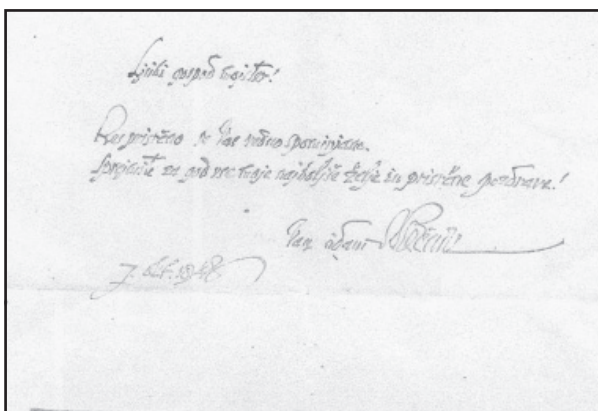 Ljubi gospod mojster!
Res prisrčno se Vas vedno spominjamo.
Sprejmite za god moje najboljše želje in prisrčne pozdrave!
Vaš vdani
7. okt.